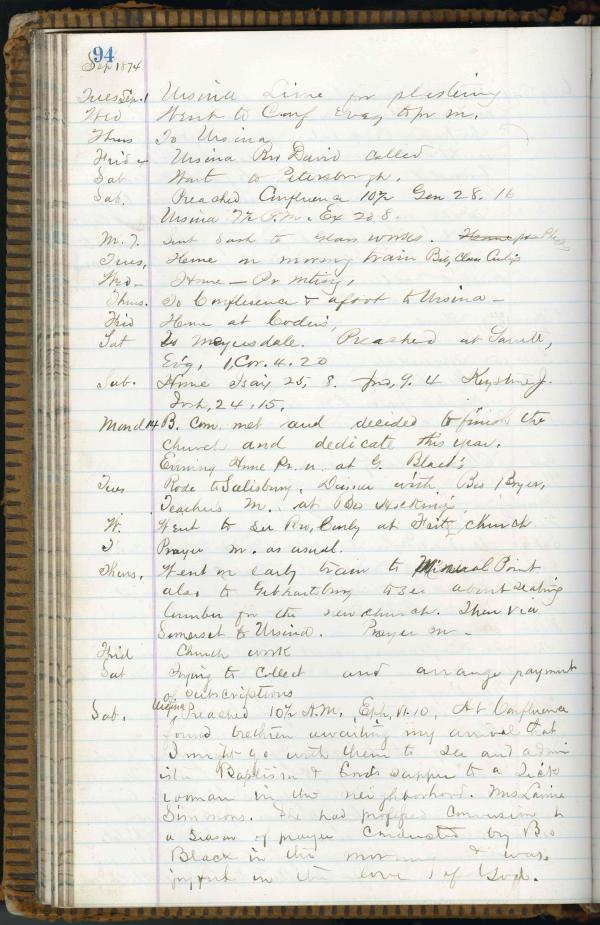 94
Sep 1874
Tues Sep. 1 Ursina Lime for plastering
Wed Went to Conf Evag to pr m.
Thurs To Ursina
Frid Ursina Bro David called
Sat Went to Petersburgh.
Sab. Preached Confluence 10½ Gen 28. 16
Ursina 7½ P.M. Ex 20, 8.
M. Sent Sash to Glass works.
Tues, Home on morning train
Wed. Home — Pr. meeting,
Thurs. To Confluence & afoot to Ursina —
Frid Home at Coders,
Sat to Meyersdale. Preached at
Evg, 1 Cor. 4. 20
Sab. Home Isai, 25, 8. 9. 4 Keystone J.
Josh, 24. 15.
Mond 14 B. Com. met and decided to finish the
church and dedicate this year.
Evening Home Pr. m. at G. Black's
Tues Rode to Salisbury, Dinner with Bro
Teachers M. at Bro Hocking's,
W. Went to see Bro, at Fritz church
T Prayer m. as usual.
Thurs, Went on early train to Mineral Point
also to Gebhartsburg to see about seating
lumber for the new church. Then via
Somerset to Ursina. Prayer m —
Frid Church work
Sat Trying to collect and arrange payment
of subscriptions
Sab. Ursina Preached 10½ A.M. Eph, VI. 10, At Confluence
found brethren awaiting my arrival that
I might go with them to see and admin
ister Baptism & Lords supper to a sick
woman in the neighborhood. Mrs
Simmons. She had professed conversion in
a season of prayer conducted by Bro
Black in the morning & was
joyful in the love of God.